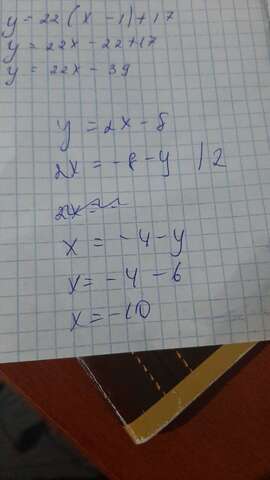 y = 22(x - 1) + 17
y = 22x - 22 + 17
y = 22x - 39
y = 2x - 8
2x = -8 - y | 2
2x = -
x = -4 - y
x = -4 - 6
x = -10